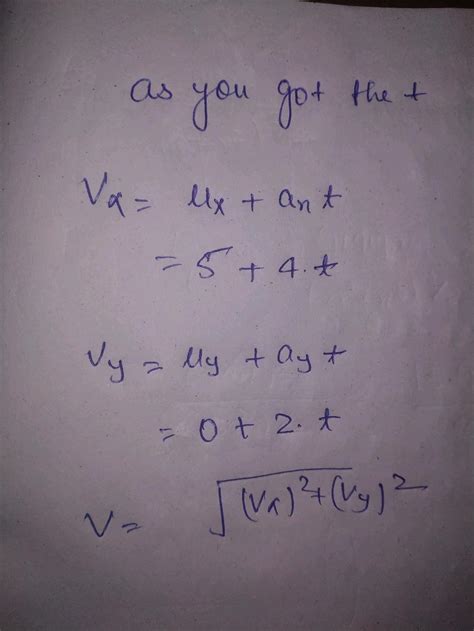 as you got the t
Vx = ux + an t
= 5 + 4.t
Vy = uy + ay t
= 0 + 2.t
V = √(Vx)²+(Vy)²